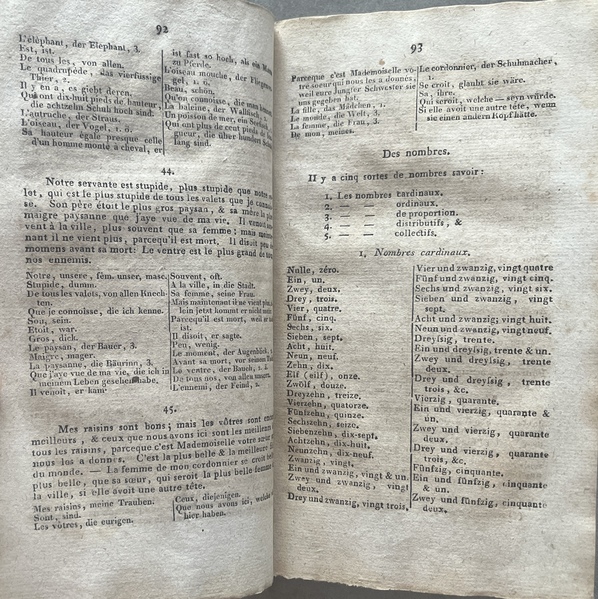 92
L'éléphant, der Elephant, 3.
Est, ist.
De tous les, von allen.
Le quadrupède, das vierfüssige
Thier, 2.
Il y en a, es giebt deren.
Qui ont dix-huit pieds de hauteur,
die achtzehn Schuh hoch sind.
L'autruche, der Strauss.
L'oiseau, der Vogel, 1. ö.
Sa hauteur égale presque celle
d'un homme monté à cheval, er
ist fast so hoch, als ein Mann
zu Pferde.
L'oiseau mouche, der Fliegenvo-
gel, 1. ö.
Beau, schön.
Qu'on connoisse, die man kennt.
La baleine, der Wallfisch, 1.
Un poisson de mer, ein
Qui ont plus de cent pieds de
gueur, die über hundert Schuh
lang sind.
44.
Notre servante est stupide, plus stupide que notre va-
let, qui est le plus stupide de tous les valets que je connois-
se. Son père étoit le plus gros paysan, & sa mère la plus
maigre paysanne que j'aye vue de ma vie. Il venoit sou-
vent à la ville, plus souvent que sa femme; mais mainte-
nant il ne vient plus, parcequ'il est mort. Il disoit peu de
momens avant sa mort: Le ventre est le plus grand de
nos ennemis.
Notre, unsere, fém. unser, masc.
Stupide, dumm.
De tous les valets, von allen Knech-
ten.
Que je connoisse, die ich kenne.
Son, sein.
Etoit, war.
Gros, dick.
Le paysan, der Bauer, 3.
Maigre, mager.
La paysanne, die Bäurinn, 3.
Que j'aye vue de ma vie, die ich in
meinem Leben gesehen habe.
Il venoit, er kam.
Souvent, oft.
A la ville, in die Stadt.
Sa femme, seine Frau.
Mais maintenant il ne vient plus, al-
lein jetzt kommt er nicht mehr.
Parcequ'il est mort, weil er
ist.
Il disoit, er sagte.
Peu, wenig.
Le moment, der Augenblick, 1.
Avant sa mort, vor seinem
Le ventre, der Bauch, 1. ä.
De tous nos, von allen unsern.
L'ennemi, der Feind, 1.
45.
Mes raisins sont bons; mais les vôtres sont encore
meilleurs, & ceux que nous avons ici sont les meilleurs de
tous les raisins, parceque c'est Mademoiselle votre sœur qui
nous les a donnés. C'est la plus belle & la meilleure fille
du monde. — La femme de mon cordonnier se croit bien
plus belle, que sa sœur, qui seroit la plus belle femme de
la ville, si elle avoit une autre tête.
Mes raisins, meine Trauben.
Sont, sind.
Les vôtres, die eurigen.
Ceux, diejenigen.
Que nous avons ici, welche wir
hier haben.
93
Parceque c'est Mademoiselle vo-
tre sœur qui nous les a donnés,
weil eure Jungfer Schwester sie
uns gegeben hat.
La fille, das Mädchen, 1.
Le monde, die Welt, 3.
La femme, die Frau, 3.
De mon, meines.
Le cordonnier, der Schuhmacher,
1.
Se croit, glaubt sie wäre.
Sa, ihre.
Qui seroit, welche — seyn würde.
Si elle avoit une autre tête, wenn
sie einen andern Kopf hätte.
Des nombres.
Il y a cinq sortes de nombres savoir:
1. Les nombres cardinaux.
2. — — ordinaux.
3. — — de proportion.
4. — — distributifs, &
5. — — collectifs.
1. Nombres cardinaux.
Nulle, zéro.
Ein, un.
Zwey, deux.
Drey, trois.
Vier, quatre.
Fünf, cinq.
Sechs, six.
Sieben, sept.
Acht, huit.
Neun, neuf.
Zehn, dix.
Elf (eilf), onze.
Zwölf, douze.
Dreyzehn, treize.
Vierzehn, quatorze.
Fünfzehn, quinze.
Sechszehn, seize.
Siebenzehn, dix-sept.
Achtzehn, dix-huit.
Neunzehn, dix-neuf.
Zwanzig, vingt.
Ein und zwanzig, vingt & un.
Zwey und zwanzig, vingt
deux.
Drey und zwanzig, vingt trois.
Vier und zwanzig, vingt quatre
Fünf und zwanzig, vingt cinq.
Sechs und zwanzig, vingt six.
Sieben und zwanzig, vingt
sept.
Acht und zwanzig; vingt huit.
Neun und zwanzig, vingt neuf.
Dreyſsig, trente.
Ein und dreyſsig, trente & un.
Zwey und dreyſsig, trente
deux.
Drey und dreyſsig, trente
trois, &c.
Vierzig, quarante.
Ein und vierzig, quarante &
un.
Zwey und vierzig, quarante
deux.
Drey und vierzig, quarante
trois, &c.
Fünfzig, cinquante.
Ein und fünfzig, cinquante
& un.
Zwey und fünfzig, cinquante
deux.